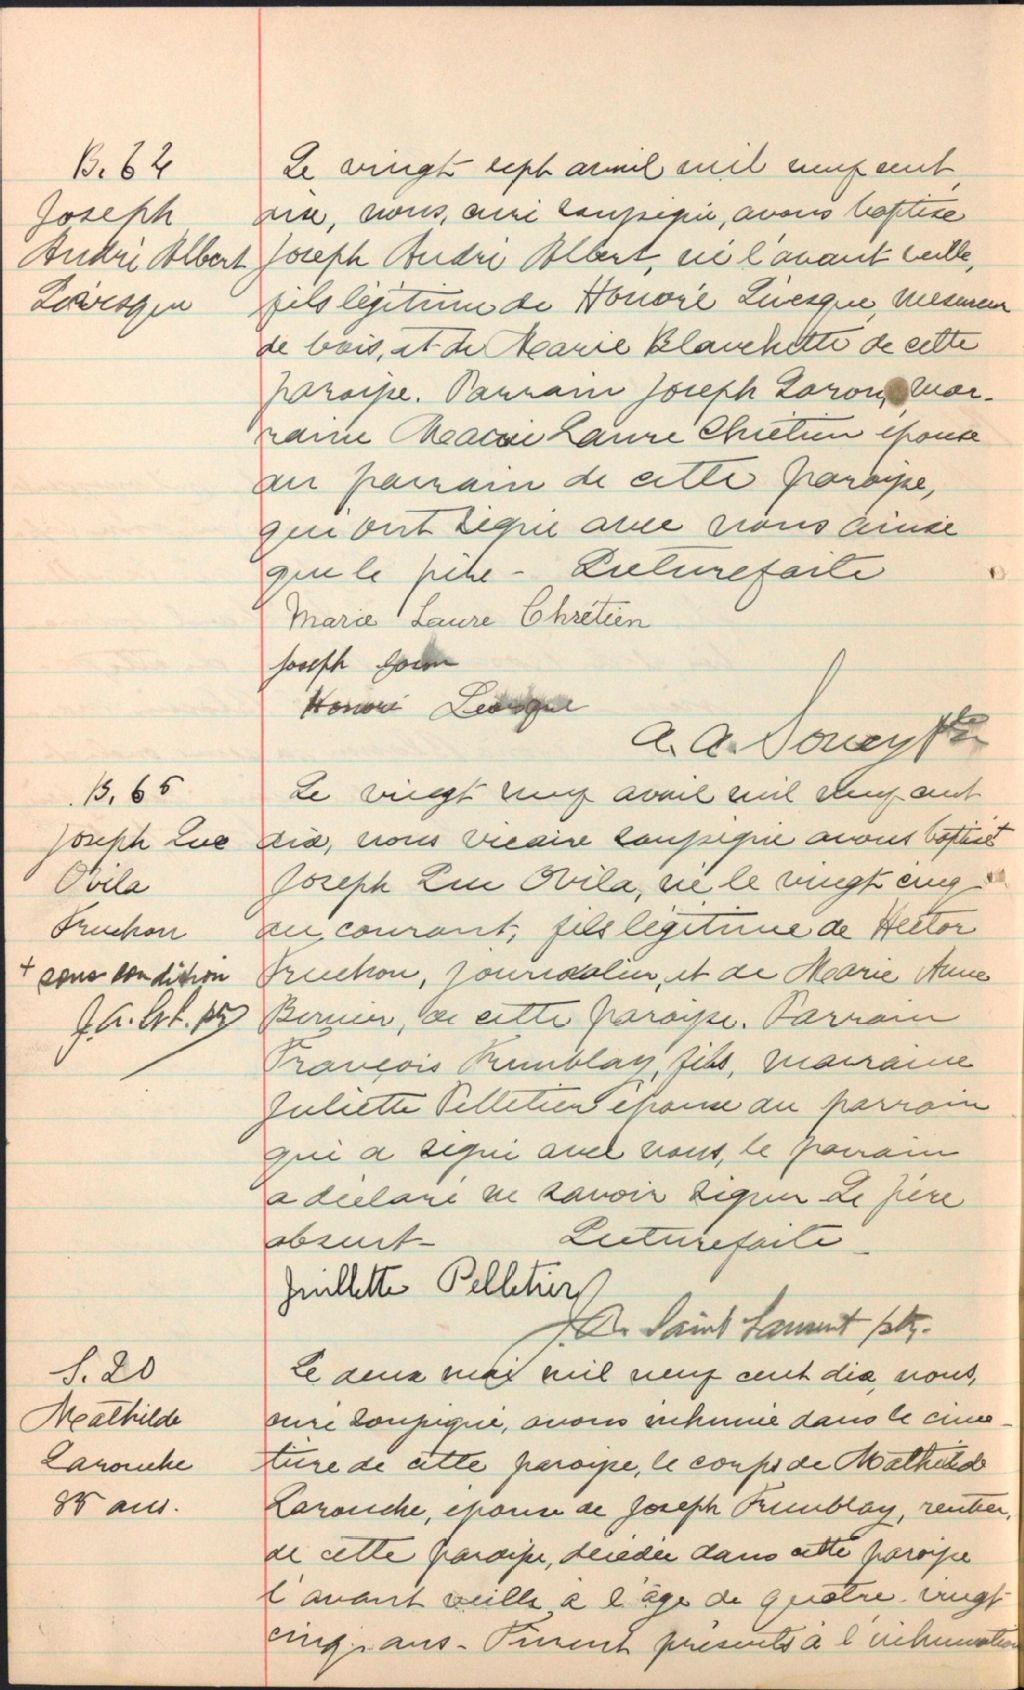 B. 64
Joseph
André Albert
Lévesque
Le vingt sept avril mil neuf cent
dix, nous, curé soussigné, avons baptisé
Joseph André Albert, né l'avant veille,
fils légitime de Honoré Lévesque, mesureur
de bois, et de Marie Blanchette de cette
paroisse. Parrain Joseph marraine
Marie Laure Chrétien épouse
du parrain de cette paroisse,
qui ont signé avec nous ainsi
que le père - Lecture faite
Marie Laure Chrétien
Joseph
Honoré Lévesque
A. A. Soucy Ptre
B. 65
Joseph Luc
Ovila
Truchon
+ sous condition
J. A. St L. ptre
Le vingt neuf avril mil neuf cent
dix, nous vicaire soussigné avons baptisé +
Joseph Luc Ovila, né le vingt cinq
du courant, fils légitime de Hector
Truchon, journalier, et de Marie Anne
Bernier, de cette paroisse. Parrain
François Tremblay, fils, marraine
Juliette Pelletier épouse du parrain
qui a signé avec nous, le parrain
a déclaré ne savoir signer Le père
absent - Lecture faite -
Juillette Pelletier
J. A. Saint Laurent ptre.
S. 20
Mathilde
Larouche
85 ans.
Le deux mai mil neuf cent dix, nous,
curé soussigné, avons inhumé dans le cime-
tière de cette paroisse, le corps de Mathilde
Larouche, épouse de Joseph Tremblay, rentier,
de cette paroisse, décédée dans cette paroisse
l'avant veille à l'âge de quatre-vingt
cinq ans - Furent présents à l'inhumation